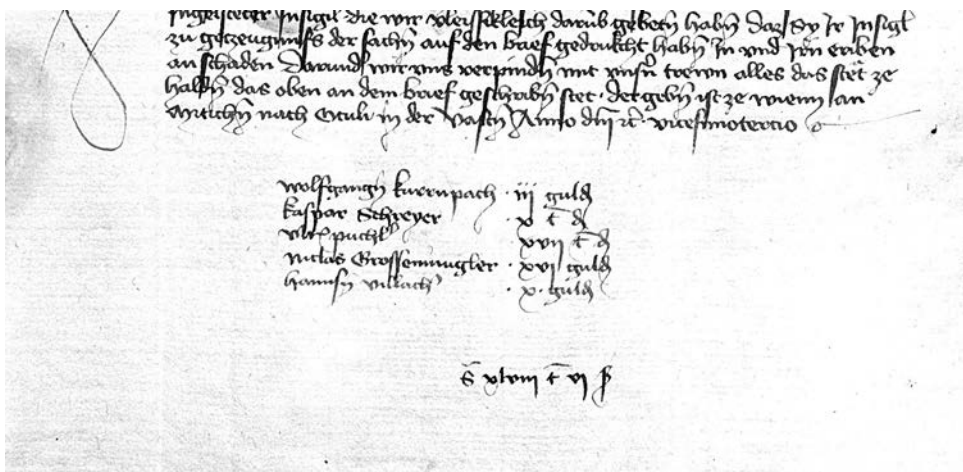 Insigel die wir vleissiklich darub gebetn habn daz Sy Ir Insigl
zu gezeugnuss der sachn auf den brief gedrukcht habn In vnd Irn eriben
an schaden Darund wir vns verpindn mit vnsn trewn alles das stet ze
haldn das oben an dem brief geschribn stet · der gebn ist ze wienn an
Mitichn nach Oculi in der Vastn Anno dni rc vicesimotercio
wolfgangn kuernpach · iij guld
kaspar Schreyer · x t d
vlr puchl · xvij t d
Niclas Grossennugler · xvj guld
hannsn villach · x · guld
S xlviij t vj ß